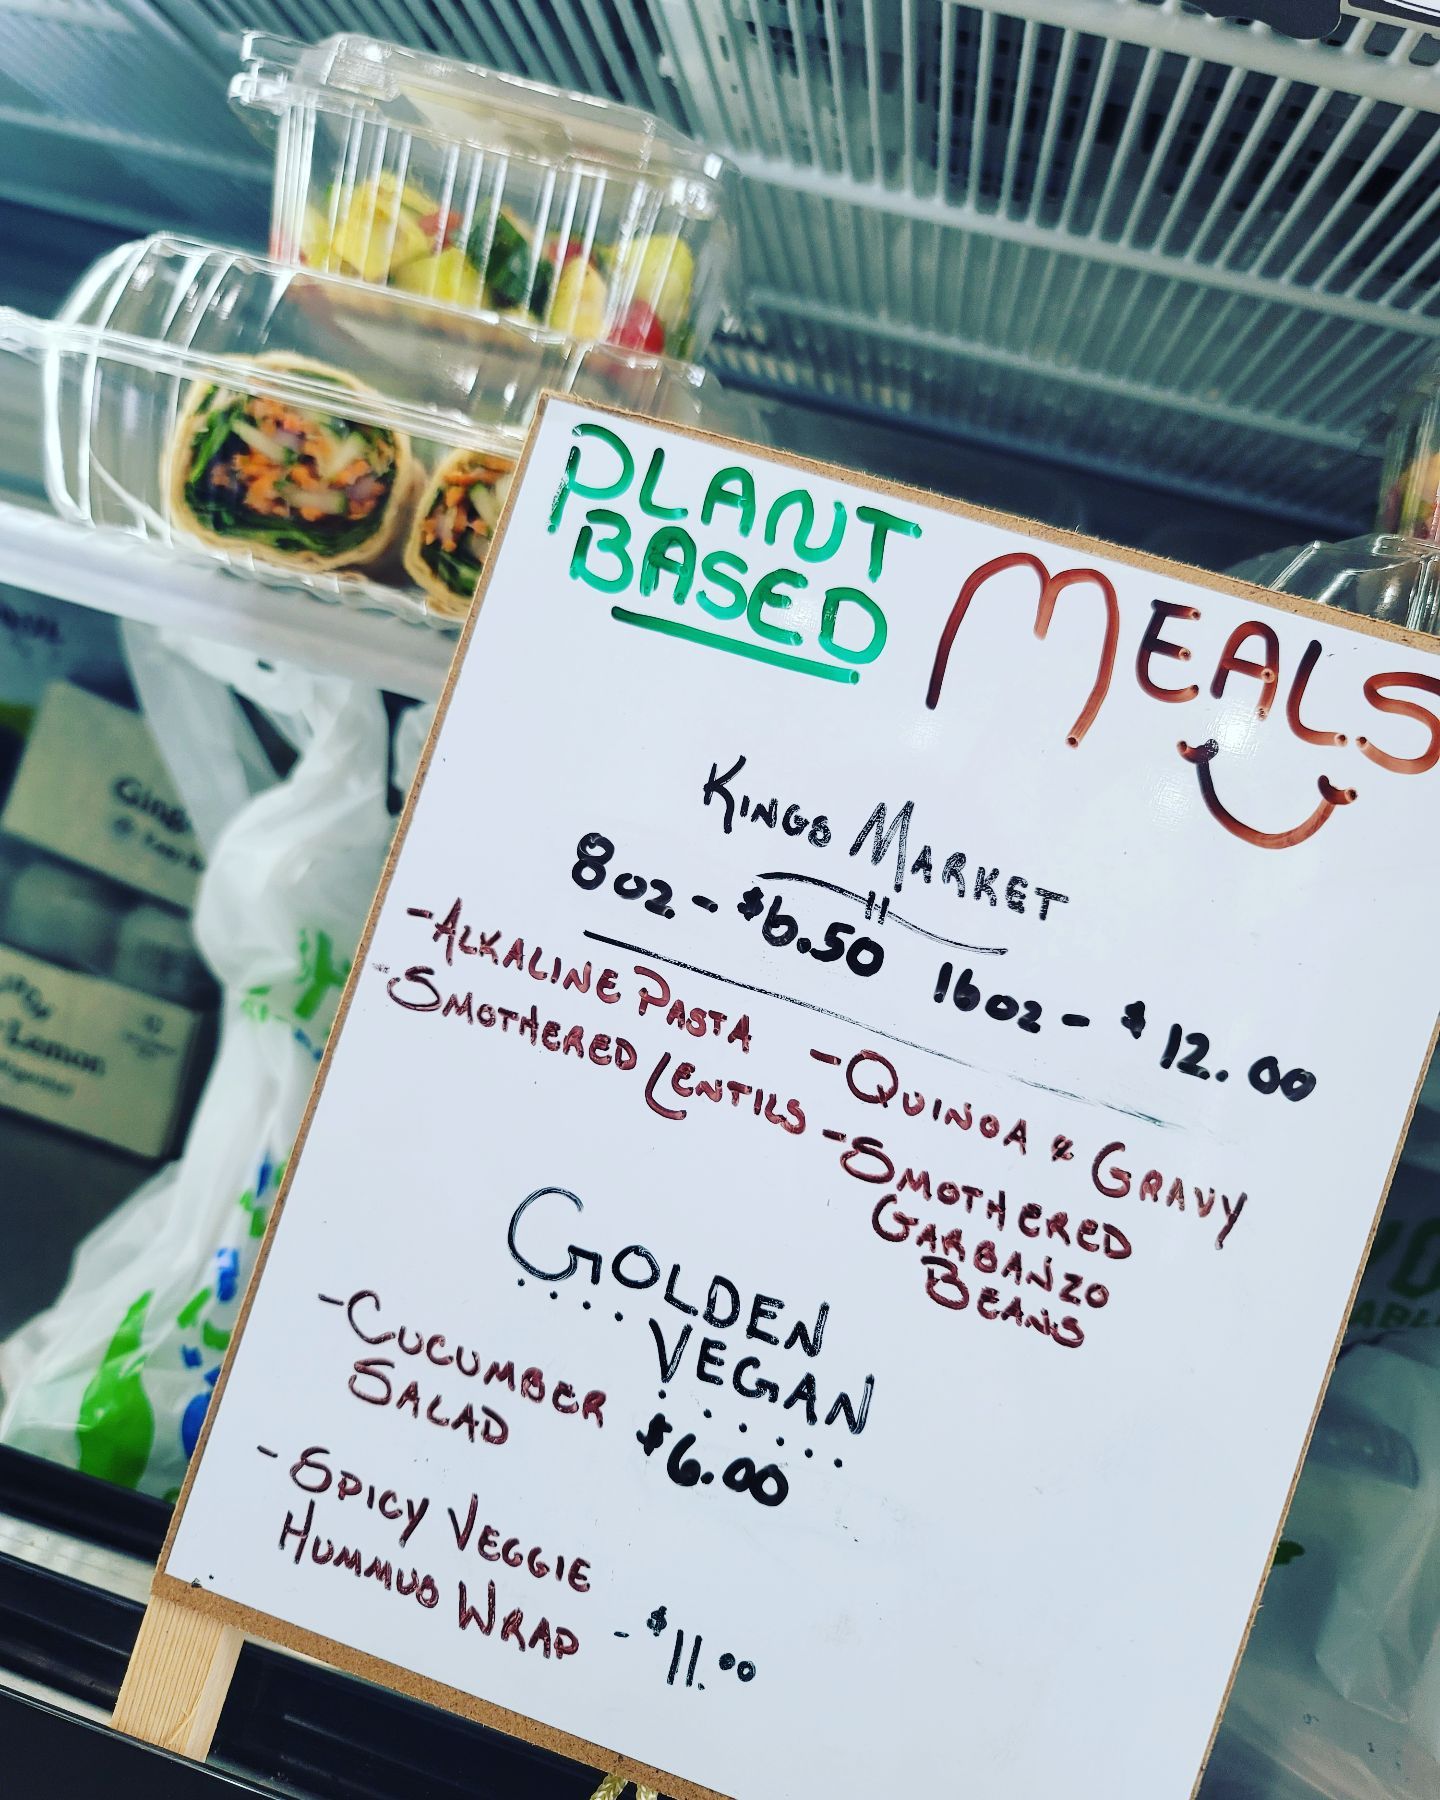 PLANT
BASED
MEALS
KINGS MARKET
8oz - $6.50 16oz - $12.00
- ALKALINE PASTA
- SMOTHERED LENTILS
- QUINOA & GRAVY
- SMOTHERED
GARBANZO
BEANS
GOLDEN
VEGAN
- CUCUMBER
SALAD
$6.00
- SPICY VEGGIE
HUMMUS WRAP - $11.00
Ging
Lemon